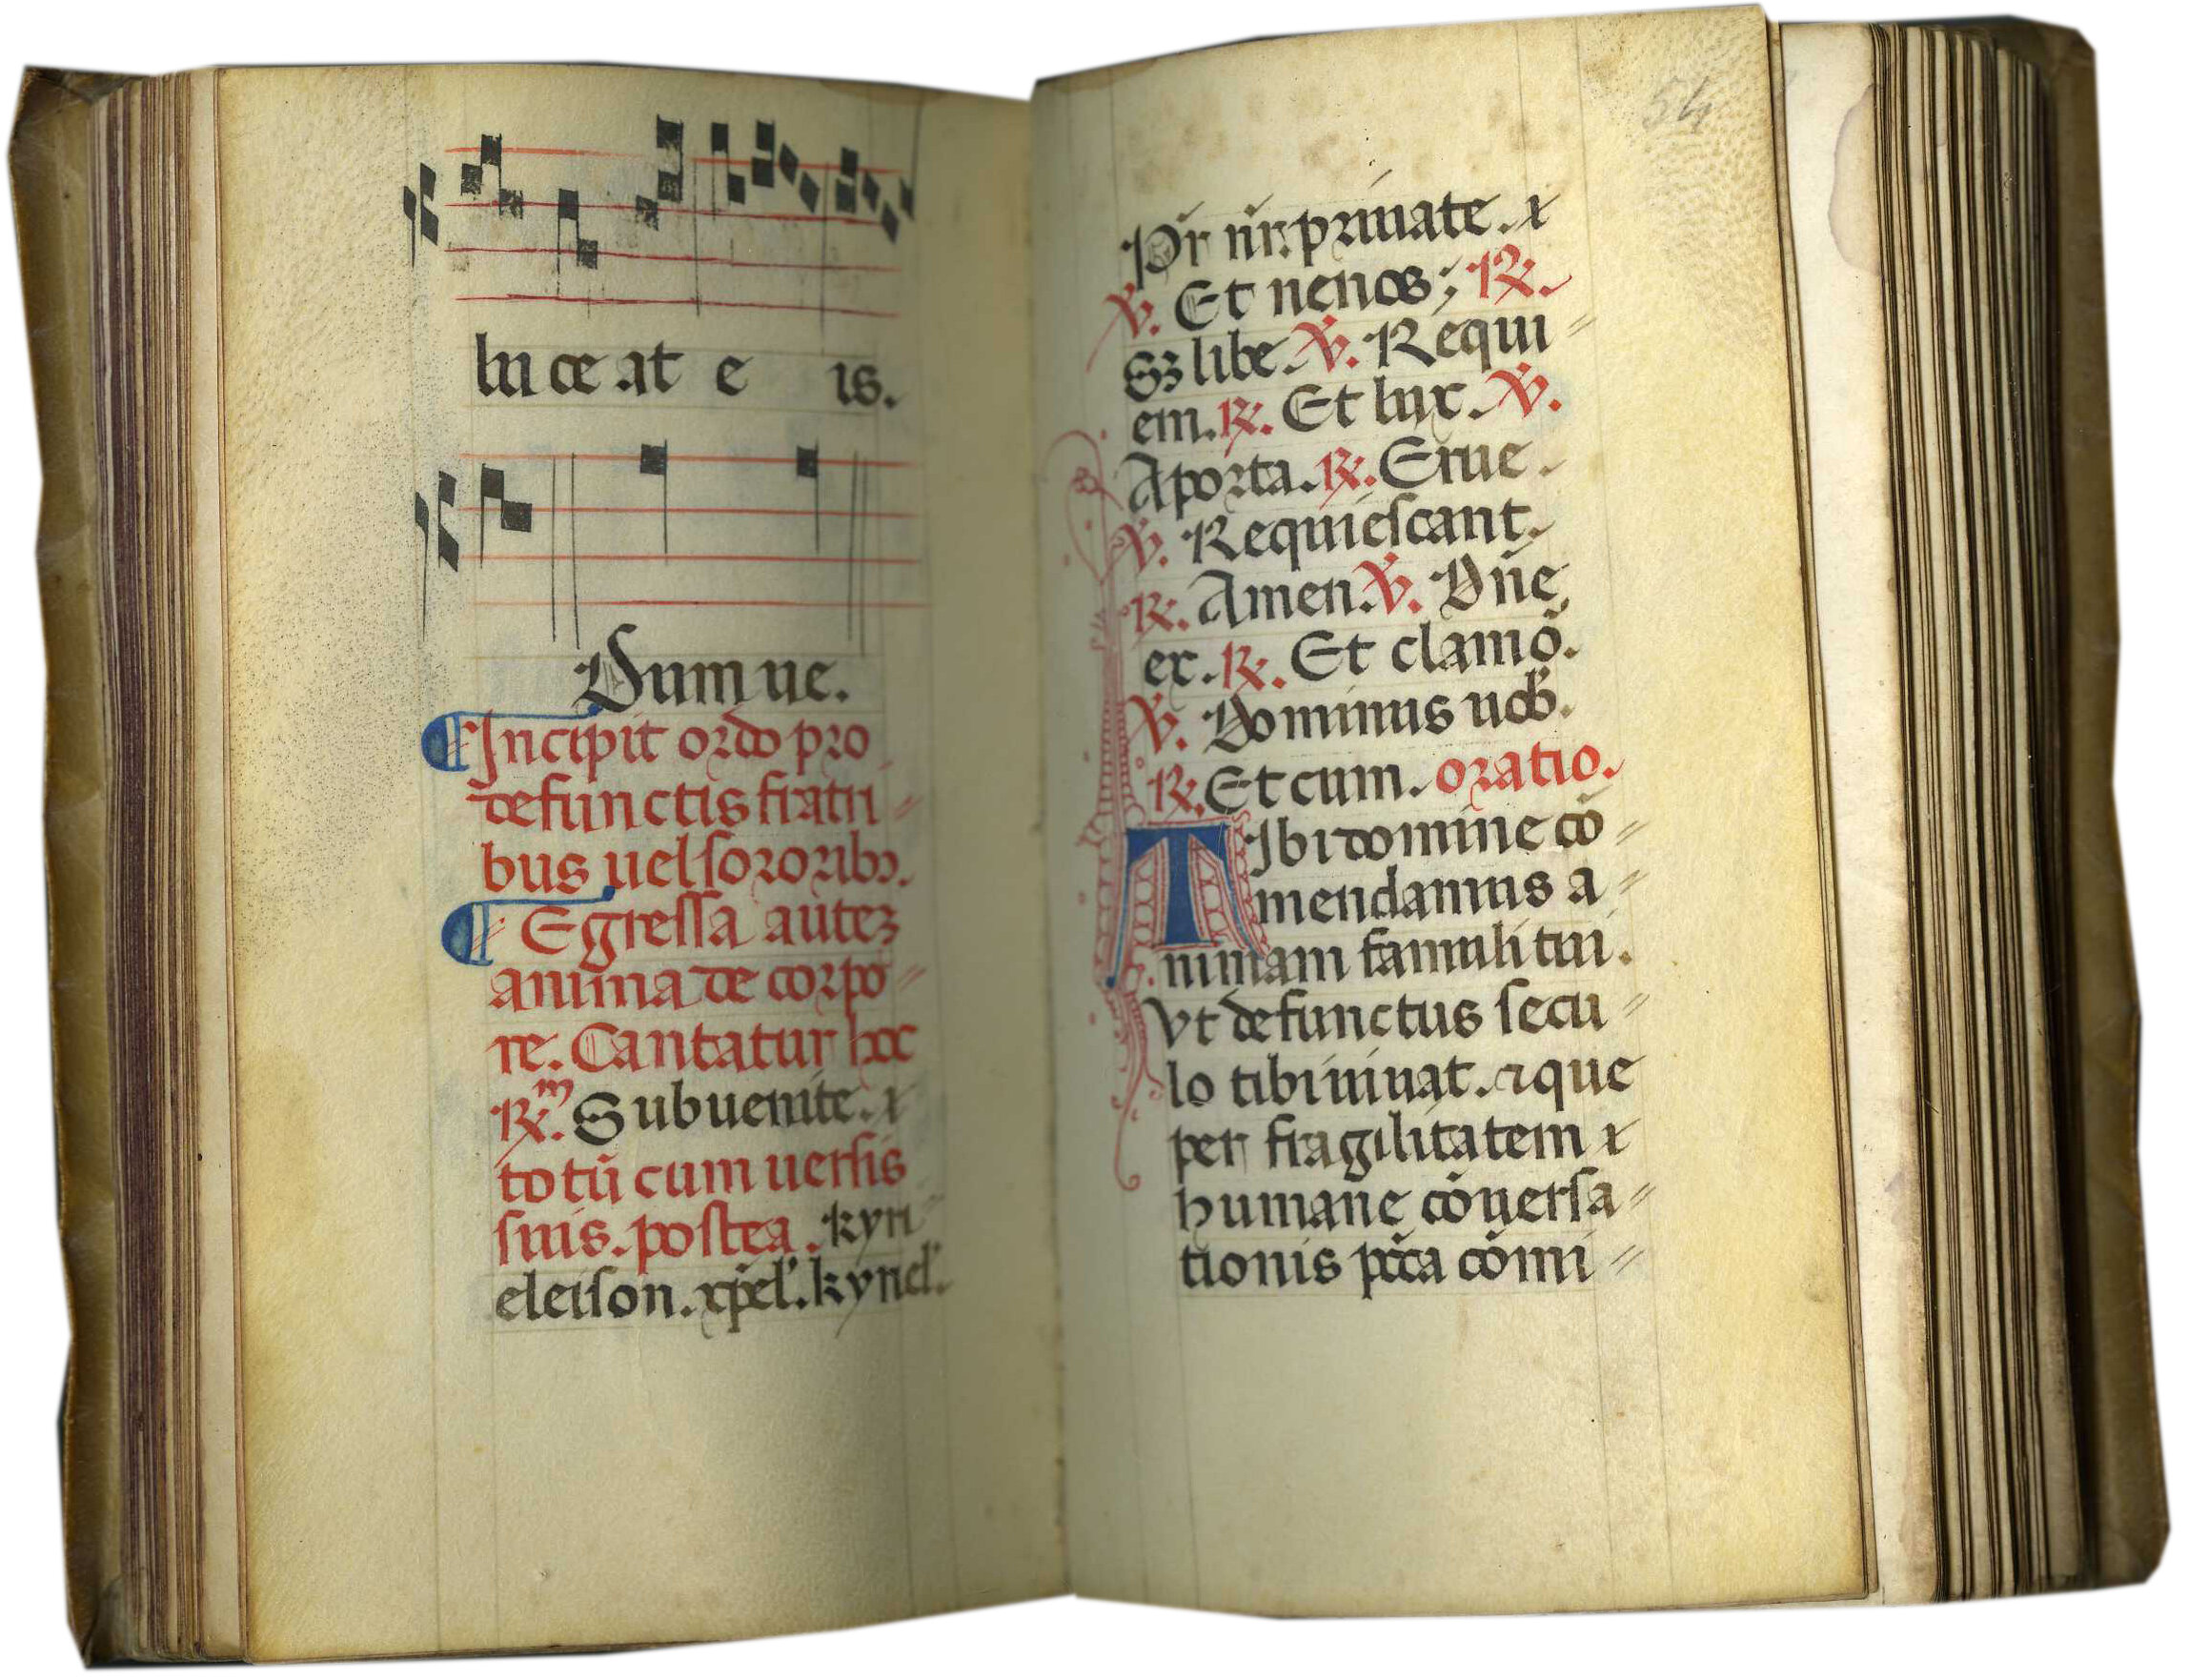 lu ce at e is.
Dum ue.
Incipit ordo pro
defunctis fratri
bus uel sororibꝰ.
Egressa auteꝫ
anima de corpo
re. Cantatur hoc
℟m. Subuenite. ⁊
totū cum uersis
suis. postea. kyri
eleison. xp̄el'. kyriel'.
54
Pr̄ nr̄. priuate. ⁊
℣. Et ne nos; ℟.
Sꝫ libe. ℣. Requi
em. ℟. Et lux. ℣.
A porta. ℟. Erue.
℣. Requiescant.
℟. Amen. ℣. Dn̄e
ex. ℟. Et clamō.
℣. Dominus uob'.
℟. Et cum. oratio.
TIbi domine cō
mendamus a
nimam famuli tui.
Vt defunctus secu
lo tibi uiuat. ⁊ que
per fragilitatem ⁊
humane cōuersa
tionis pc̄ca cōmi